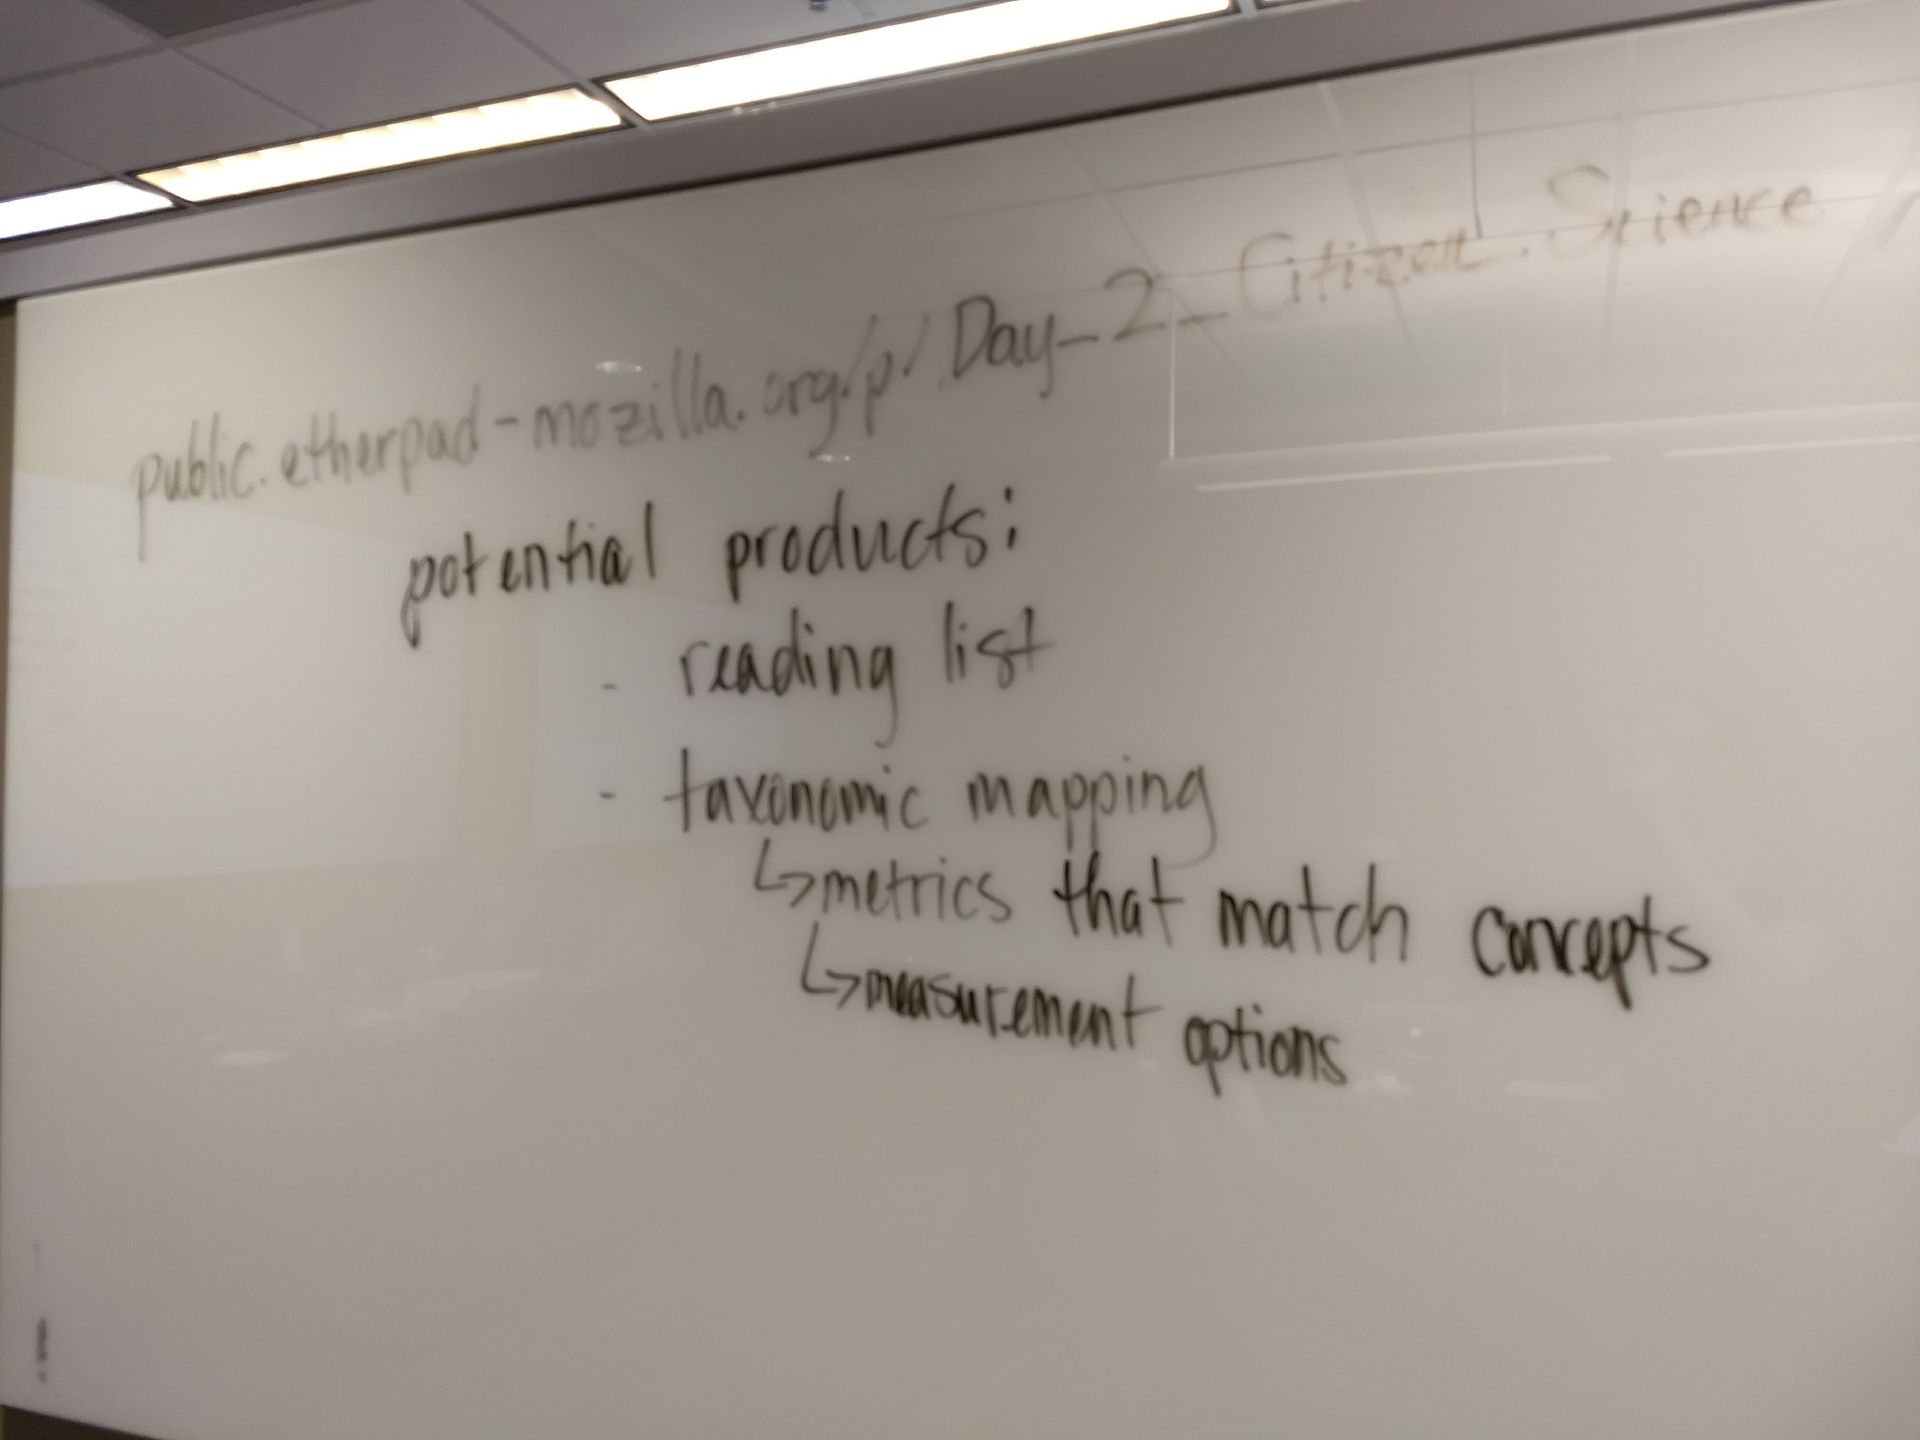 public.etherpad-mozilla.org/p/Day_2_Citizen_Science
potential products:
- reading list
- taxonomic mapping
↳metrics that match concepts
↳measurement options